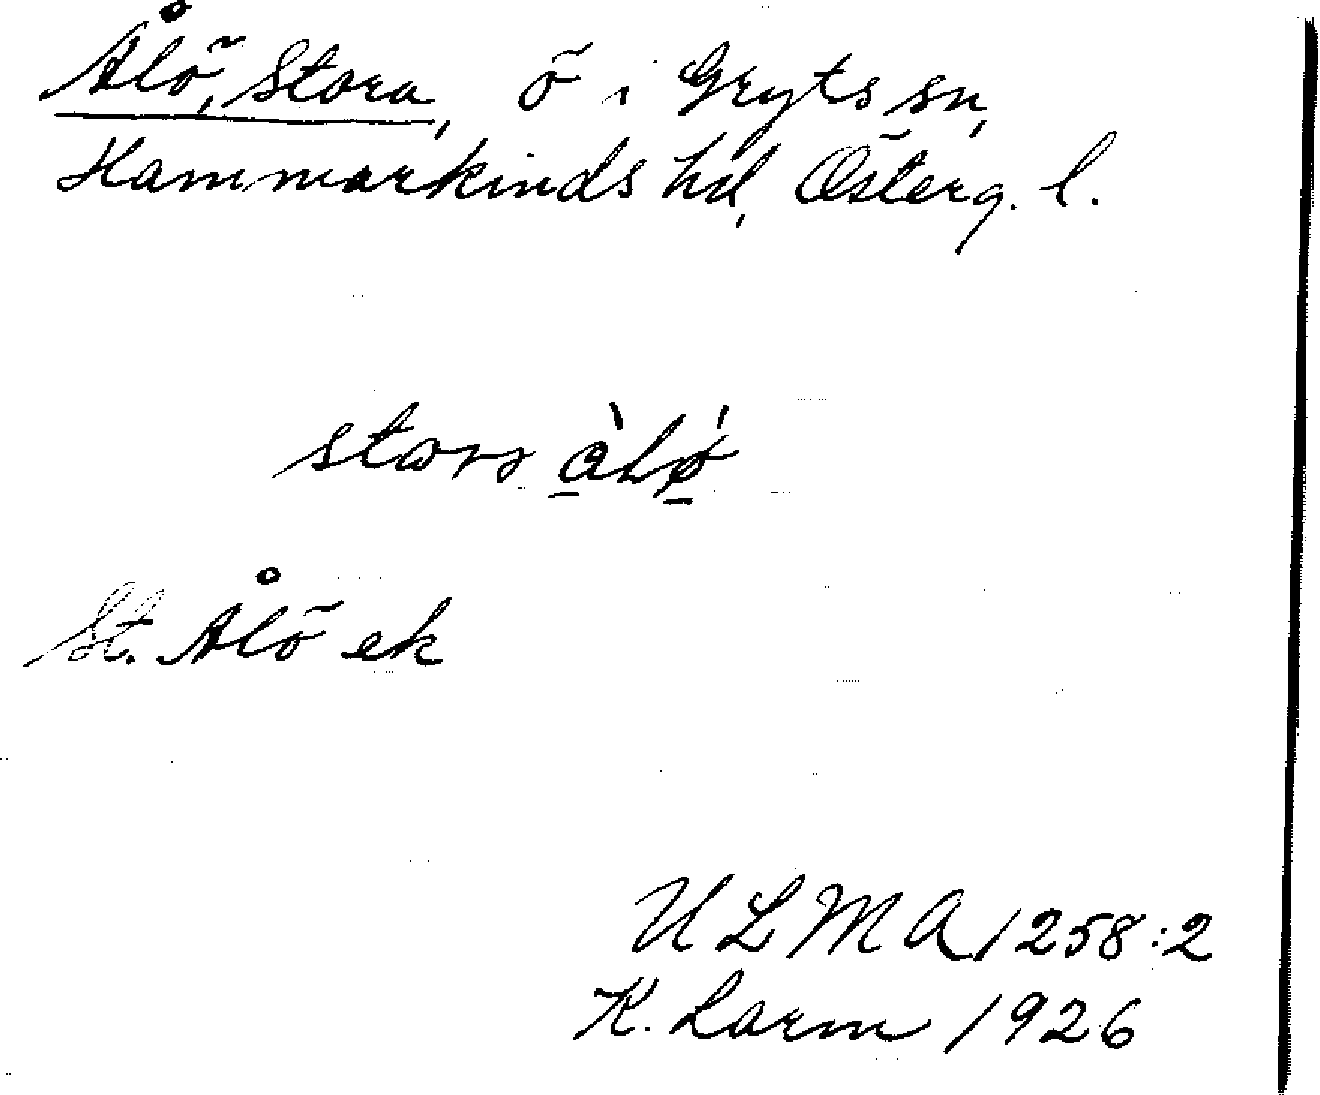 Ålö, Stora, ö i Gryts sn,
Hammarkinds hd, Österg. l.
St. Ålö ek
ULMA 1258:2
K. Larm 1926